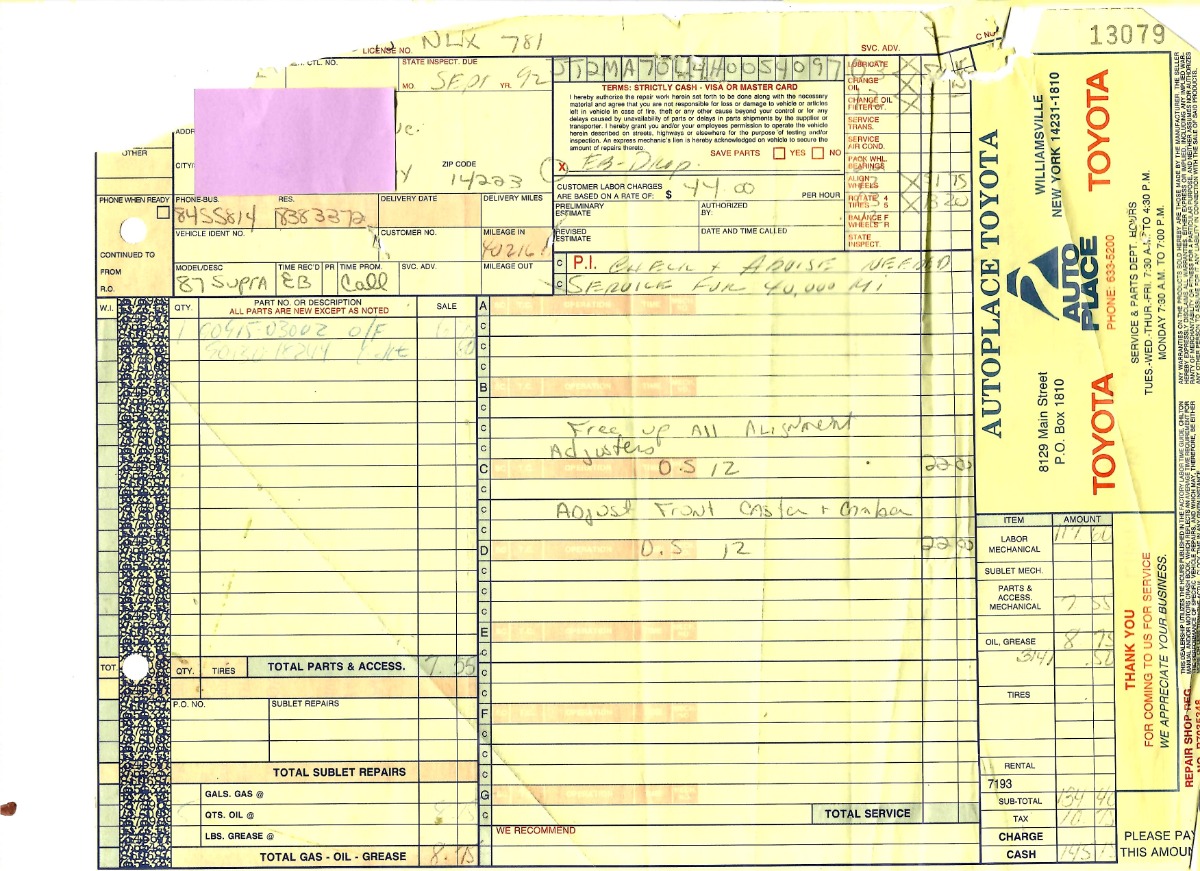 13079
LICENSE NO. NLIX 781
SVC. ADV.
CTL. NO.
STATE INSPECT. DUE
MO. SEPT YR. 92
JT2MA70L4H0054097
TERMS: STRICTLY CASH - VISA OR MASTER CARD
I hereby authorize the repair work herein set forth to be done along with the necessary
material and agree that you are not responsible for loss or damage to vehicle or articles
left in vehicle in case of fire, theft or any other cause beyond your control or for any
delays caused by unavailability of parts or delays in parts shipments by the supplier or
transporter. I hereby grant you and/or your employees permission to operate the vehicle
herein described on streets, highways or elsewhere for the purpose of testing and/or
inspection. An express mechanic's lien is hereby acknowledged on vehicle to secure the
amount of repairs thereto.
SAVE PARTS YES NO
X EB-Drop
LUBRICATE
CHANGE OIL
CHANGE OIL FILTER
SERVICE TRANS.
SERVICE AIR COND.
PACK WHL. BEARINGS
ALIGN WHEELS 51 15
ROTATE 4 TIRES 5 13 20
BALANCE F WHEELS R
STATE INSPECT.
OTHER
ADDR
CITY
ZIP CODE
14223
CUSTOMER LABOR CHARGES
ARE BASED ON A RATE OF: $ 44.00 PER HOUR
PHONE WHEN READY
PHONE-BUS. 8455814
RES. 8383372
DELIVERY DATE
DELIVERY MILES
PRELIMINARY ESTIMATE
AUTHORIZED BY:
REVISED ESTIMATE
DATE AND TIME CALLED
VEHICLE IDENT NO.
CUSTOMER NO.
MILEAGE IN
40216
CONTINUED TO
FROM
R.O.
MODEL/DESC 87 SUPRA
TIME REC'D EB
PR
TIME PROM. Call
SVC. ADV.
MILEAGE OUT
C P.I. CHECK + ADVISE NEEDED
C SERVICE FOR 40,000 MI
W.I.
QTY.
PART NO. OR DESCRIPTION
ALL PARTS ARE NEW EXCEPT AS NOTED
SALE
1 O/F
A
C
B
C
Free up All Alignment
Adjusters
C 0.5 12 22 00
Adjust Front Caster + Camber
D 0.5 12 22 00
E
F
G
TOT.
QTY. TIRES
TOTAL PARTS & ACCESS. 7.55
P.O. NO.
SUBLET REPAIRS
TOTAL SUBLET REPAIRS
GALS. GAS @
QTS. OIL @
LBS. GREASE @
TOTAL GAS - OIL - GREASE 8.75
TOTAL SERVICE
WE RECOMMEND
AUTOPLACE TOYOTA
8129 Main Street
P.O. Box 1810
WILLIAMSVILLE
NEW YORK 14231-1810
AUTO PLACE
PHONE: 633-5200
TOYOTA
TOYOTA
SERVICE & PARTS DEPT. HOURS
TUES.-WED.-THUR.-FRI. 7:30 A.M. TO 4:30 P.M.
MONDAY 7:30 A.M. TO 7:00 P.M.
ITEM AMOUNT
LABOR MECHANICAL 117 60
SUBLET MECH.
PARTS & ACCESS. MECHANICAL 7 55
OIL, GREASE 8 75
3141 .50
TIRES
RENTAL
7193
SUB-TOTAL 134 40
TAX 10 75
CHARGE
CASH 145 15
THANK YOU
FOR COMING TO US FOR SERVICE
WE APPRECIATE YOUR BUSINESS.
REPAIR SHOP REG.
PLEASE PAY
THIS AMOUN